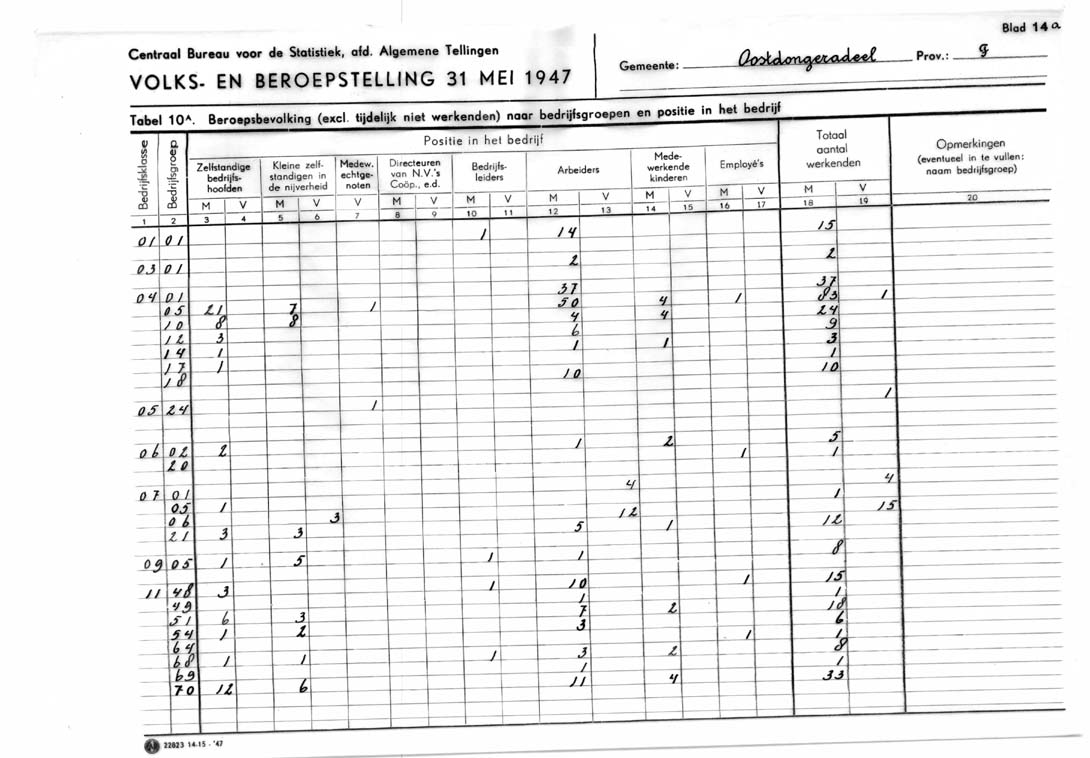 Blad 14a
Centraal Bureau voor de Statistiek, afd. Algemene Tellingen
VOLKS- EN BEROEPSTELLING 31 MEI 1947
Gemeente: Oostdongeradeel Prov.: g
Tabel 10A. Beroepsbevolking (excl. tijdelijk niet werkenden) naar bedrijfsgroepen en positie in het bedrijf
Bedrijfsklasse
Bedrijfsgroep
Positie in het bedrijf
Zelfstandige
bedrijfs-
hoofden
Kleine zelf-
standigen in
de nijverheid
Medew.
echtge-
noten
Directeuren
van N.V.'s
Coöp., e.d.
Bedrijfs-
leiders
Arbeiders
Mede-
werkende
kinderen
Employé's
Totaal
aantal
werkenden
Opmerkingen
(eventueel in te vullen:
naam bedrijfsgroep)
M V M V V M V M V M V M V M V M V
1 2 3 4 5 6 7 8 9 10 11 12 13 14 15 16 17 18 19 20
01 01 1 14 15
03 01 2 2
04 01 37 37
05 21 7 1 50 4 1 83 1
10 8 8 4 4 24
12 3 6 9
14 1 1 1 3
17 1 1
18 10 10
05 24 1 1
06 02 2 1 2 5
20 1 1
07 01 4 4
05 1 1
06 3 12 15
21 3 3 5 1 12
09 05 1 5 1 1 8
11 48 3 1 10 1 15
49 1 1
51 6 3 7 2 18
54 1 2 3 6
64 1 1
68 1 1 1 3 2 8
69 1 1
70 12 6 11 4 33
22823 14-15 - '47